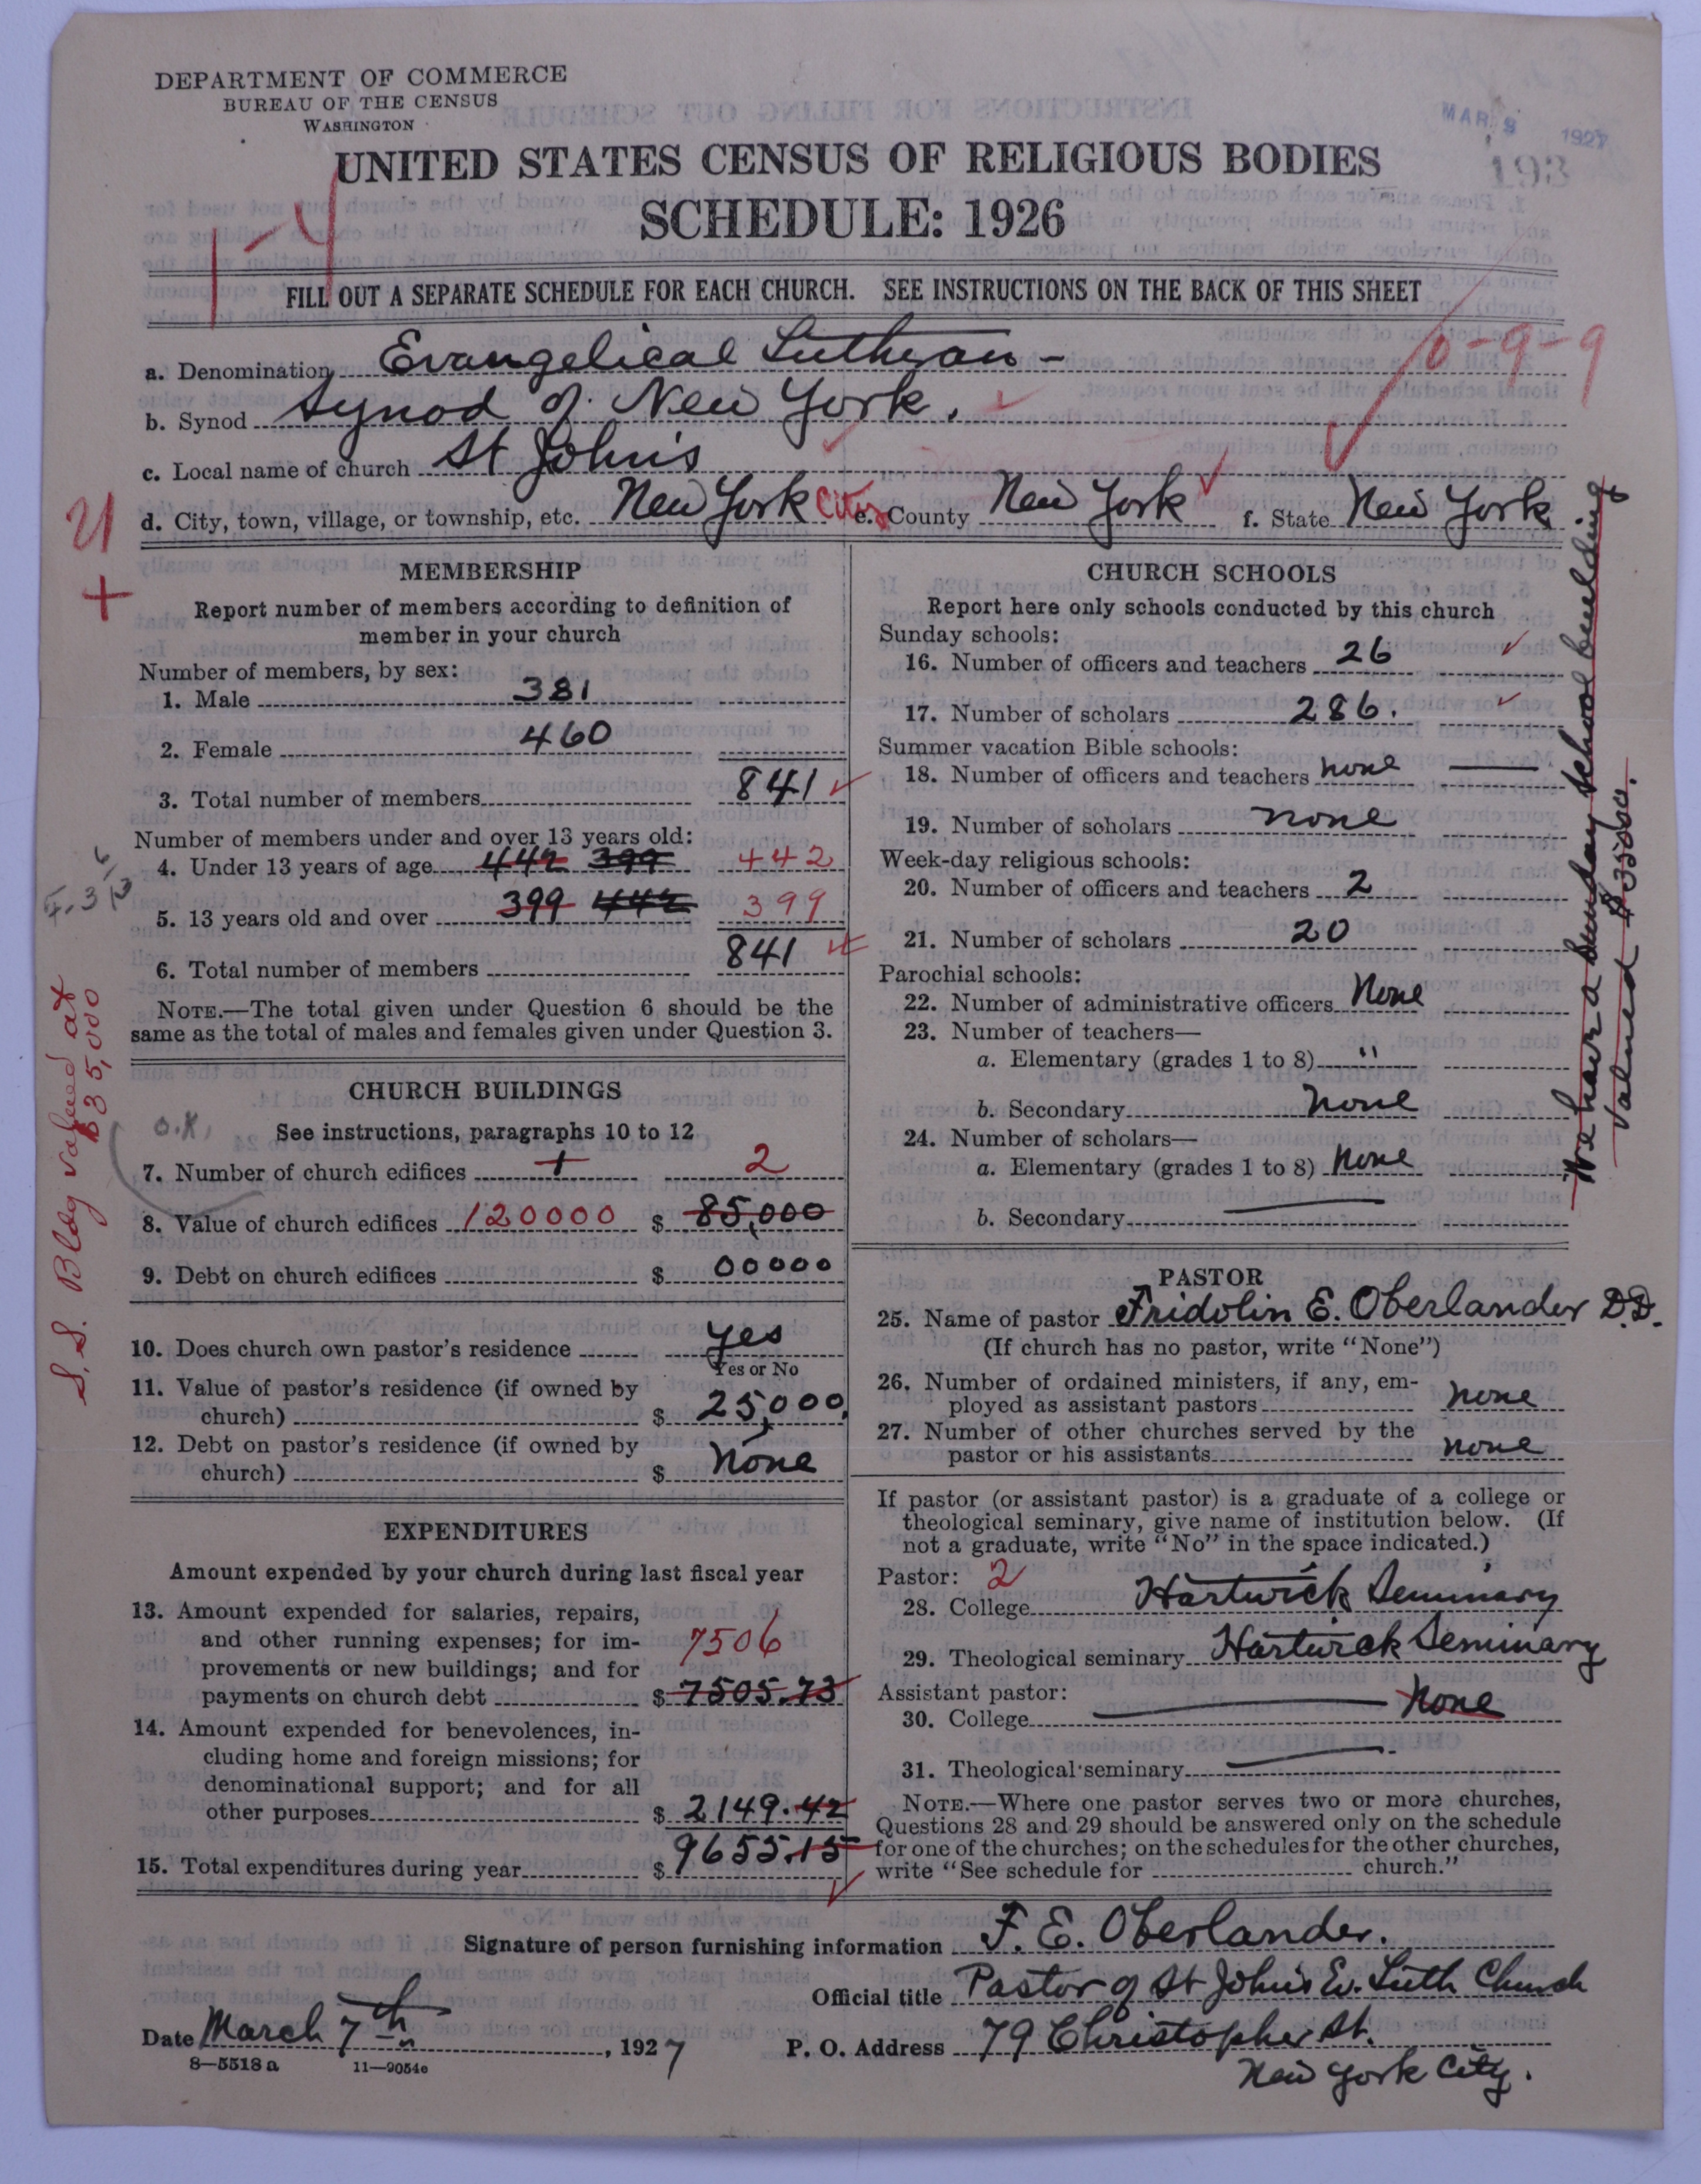 DEPARTMENT OF COMMERCE
BUREAU OF THE CENSUS
WASHINGTON
MAR 9 1927
193
UNITED STATES CENSUS OF RELIGIOUS BODIES
SCHEDULE: 1926
FILL OUT A SEPARATE SCHEDULE FOR EACH CHURCH. SEE INSTRUCTIONS ON THE BACK OF THIS SHEET
a. Denomination Evangelical Lutheran -
10-9-9
b. Synod Synod of New York.
c. Local name of church St Johns
d. City, town, village, or township, etc. New York City e. County New York f. State New York
MEMBERSHIP
Report number of members according to definition of
member in your church
Number of members, by sex:
1. Male 381
2. Female 460
3. Total number of members 841
Number of members under and over 13 years old:
4. Under 13 years of age 442 399 442
5. 13 years old and over 399 442 399
6. Total number of members 841
NOTE.—The total given under Question 6 should be the
same as the total of males and females given under Question 3.
CHURCH BUILDINGS
O.K.
See instructions, paragraphs 10 to 12
7. Number of church edifices 1 2
8. Value of church edifices 120000 $ 85,000
9. Debt on church edifices $ 00000
S.S. Bldg valued at
$35,000
10. Does church own pastor's residence yes
Yes or No
11. Value of pastor's residence (if owned by
church) $ 25,000.
12. Debt on pastor's residence (if owned by
church) $ None
EXPENDITURES
Amount expended by your church during last fiscal year
13. Amount expended for salaries, repairs,
and other running expenses; for im-
provements or new buildings; and for
payments on church debt 7506 $ 7505.73
14. Amount expended for benevolences, in-
cluding home and foreign missions; for
denominational support; and for all
other purposes $ 2149.42
15. Total expenditures during year $ 9655.15
CHURCH SCHOOLS
Report here only schools conducted by this church
Sunday schools:
16. Number of officers and teachers 26
17. Number of scholars 286.
Summer vacation Bible schools:
18. Number of officers and teachers none
19. Number of scholars none
Week-day religious schools:
20. Number of officers and teachers 2
21. Number of scholars 20
Parochial schools:
22. Number of administrative officers None
23. Number of teachers—
a. Elementary (grades 1 to 8) "
b. Secondary None
24. Number of scholars—
a. Elementary (grades 1 to 8) None
b. Secondary
We have a Sunday school building
valued $35000.
PASTOR
25. Name of pastor Fridolin E. Oberlander D.D.
(If church has no pastor, write "None")
26. Number of ordained ministers, if any, em-
ployed as assistant pastors none
27. Number of other churches served by the
pastor or his assistants none
If pastor (or assistant pastor) is a graduate of a college or
theological seminary, give name of institution below. (If
not a graduate, write "No" in the space indicated.)
Pastor: 2
28. College Hartwick Seminary
29. Theological seminary Hartwick Seminary
Assistant pastor:
30. College None
31. Theological seminary
NOTE.—Where one pastor serves two or more churches,
Questions 28 and 29 should be answered only on the schedule
for one of the churches; on the schedules for the other churches,
write "See schedule for church."
Signature of person furnishing information F. E. Oberlander.
Official title Pastor of St Johns Ev. Luth Church
Date March 7th, 1927 P. O. Address 79 Christopher St.
New York City.
8—5518a 11—9054c